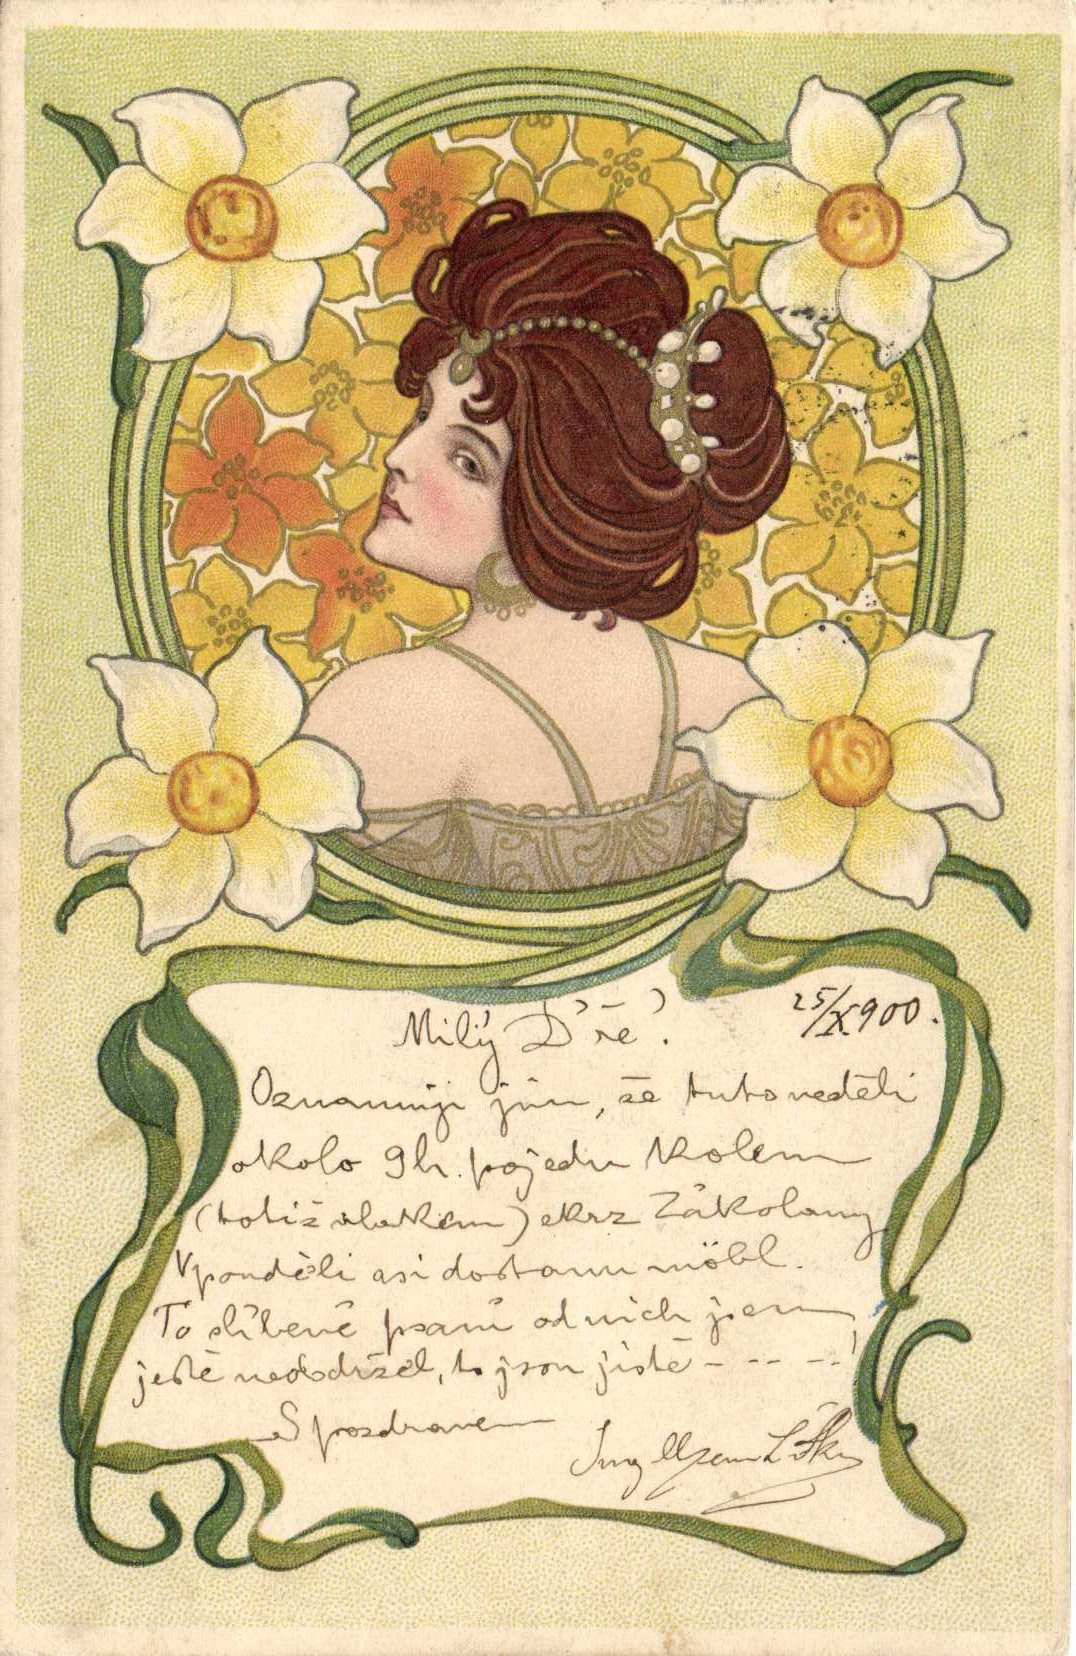 25/X 900.
Milý Dře!
Oznamuji jim, že tuto neděli
okolo 9h. pojedu kolem
(totiž vlakem) skrz Zákolany
V pondělí asi dostanu möbl.
To slíbené psaní od nich jsem
ještě neobdržel, to jsou jistě - - - - !
S pozdravem